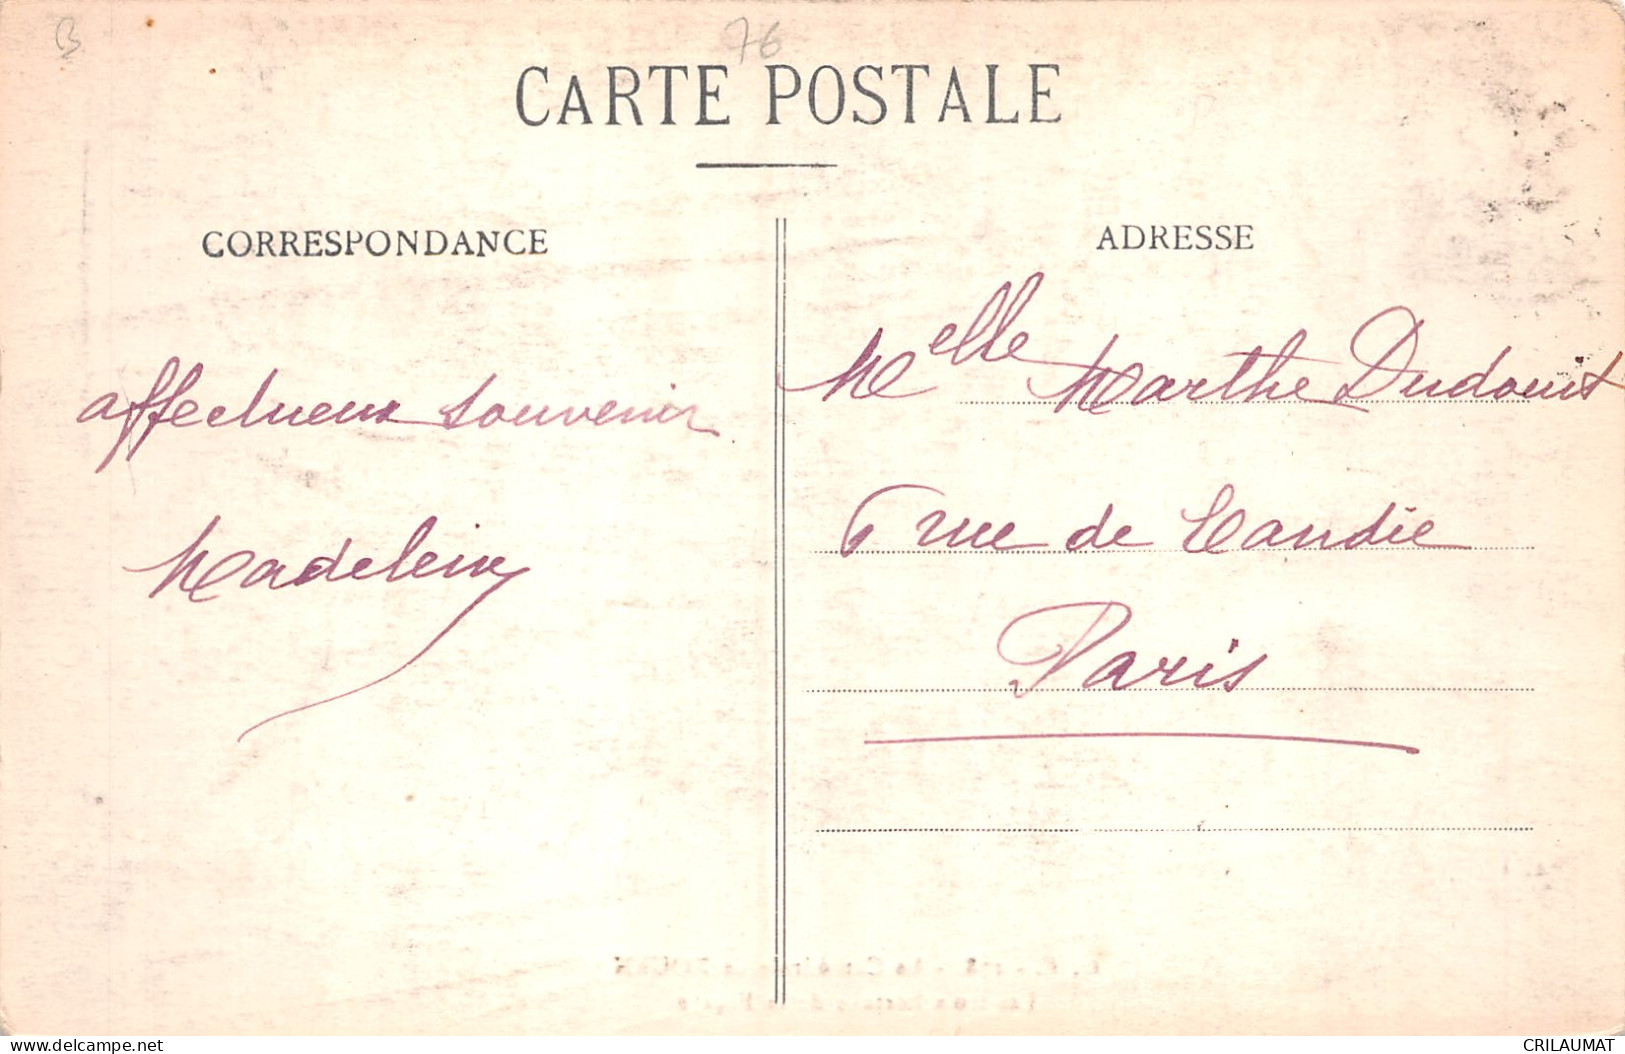 B
76
CARTE POSTALE
CORRESPONDANCE
ADRESSE
affectueux souvenir
Madeleine
Melle Marthe Dudouit
6 rue de Candie
Paris
delcampe.net
CRILAUMAT